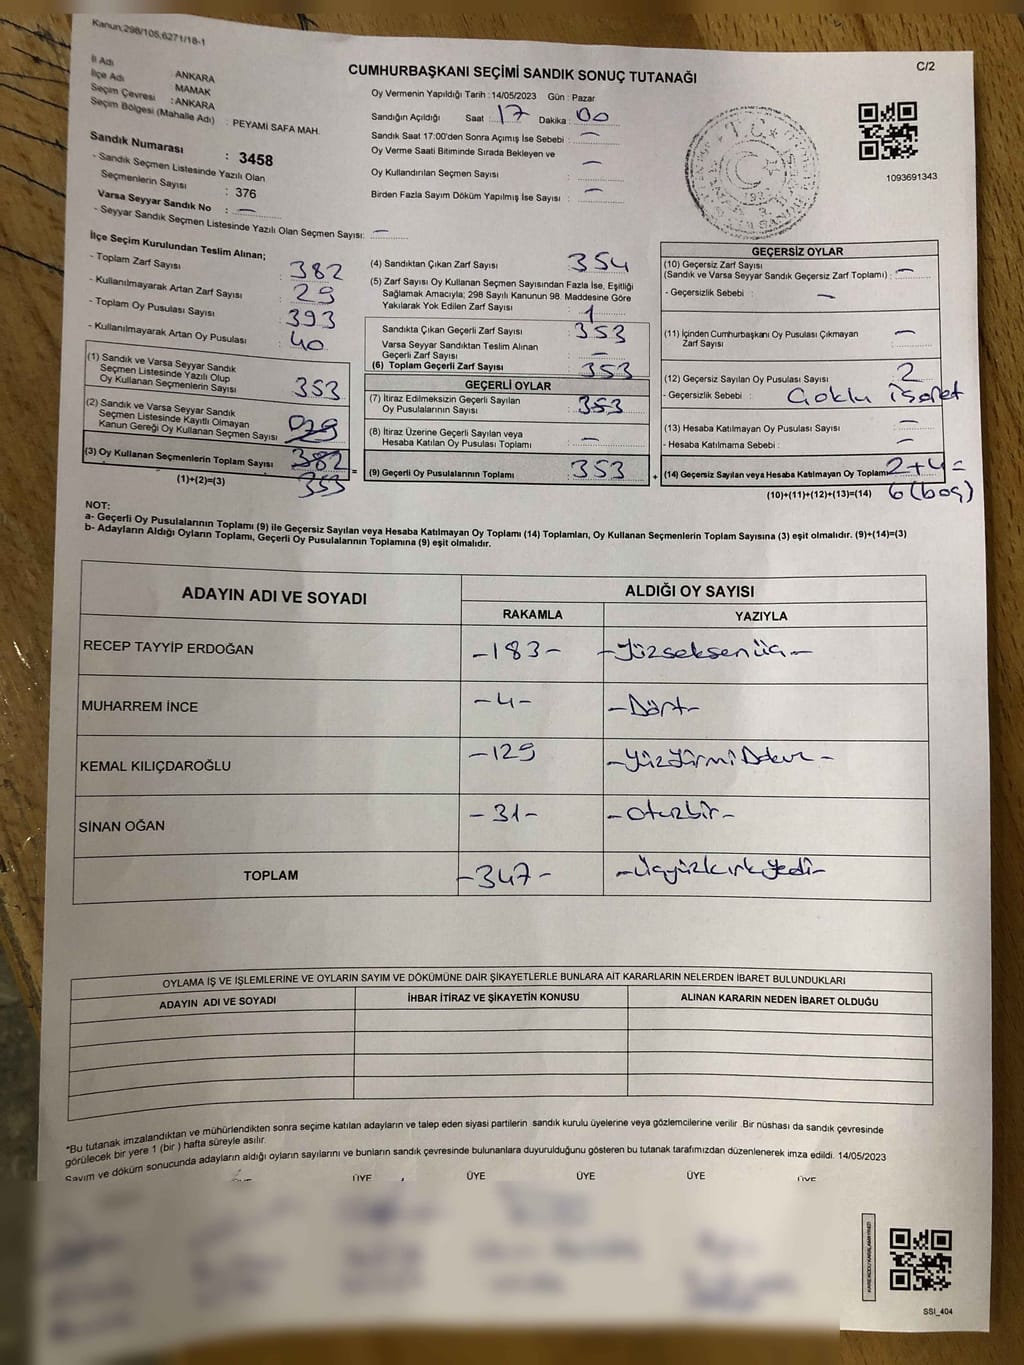 Kanun:298/105,6271/18-1
C/2
CUMHURBAŞKANI SEÇİMİ SANDIK SONUÇ TUTANAĞI
İl Adı : ANKARA
İlçe Adı MAMAK
Seçim Çevresi : ANKARA
Seçim Bölgesi (Mahalle Adı) : PEYAMİ SAFA MAH.
Sandık Numarası : 3458
- Sandık Seçmen Listesinde Yazılı Olan
Seçmenlerin Sayısı : 376
Varsa Seyyar Sandık No : —
- Seyyar Sandık Seçmen Listesinde Yazılı Olan Seçmen Sayısı: —
Oy Vermenin Yapıldığı Tarih : 14/05/2023 Gün : Pazar
Sandığın Açıldığı Saat : 17 Dakika : 00
Sandık Saat 17:00'den Sonra Açımış İse Sebebi : —
Oy Verme Saati Bitiminde Sırada Bekleyen ve
Oy Kullandırılan Seçmen Sayısı : —
Birden Fazla Sayım Döküm Yapılmış İse Sayısı : —
1093691343
İlçe Seçim Kurulundan Teslim Alınan;
- Toplam Zarf Sayısı 382
- Kullanılmayarak Artan Zarf Sayısı 29
- Toplam Oy Pusulası Sayısı 393
- Kullanılmayarak Artan Oy Pusulası 40
(1) Sandık ve Varsa Seyyar Sandık
Seçmen Listesinde Yazılı Olup
Oy Kullanan Seçmenlerin Sayısı 353
(2) Sandık ve Varsa Seyyar Sandık
Seçmen Listesinde Kayıtlı Olmayan
Kanun Gereği Oy Kullanan Seçmen Sayısı
(3) Oy Kullanan Seçmenlerin Toplam Sayısı 382
(1)+(2)=(3) 353
(4) Sandıktan Çıkan Zarf Sayısı 354
(5) Zarf Sayısı Oy Kullanan Seçmen Sayısından Fazla İse, Eşitliği
Sağlamak Amacıyla; 298 Sayılı Kanunun 98. Maddesine Göre
Yakılarak Yok Edilen Zarf Sayısı : 1
Sandıkta Çıkan Geçerli Zarf Sayısı : 353
Varsa Seyyar Sandıktan Teslim Alınan
Geçerli Zarf Sayısı : —
(6) Toplam Geçerli Zarf Sayısı : 353
GEÇERLİ OYLAR
(7) İtiraz Edilmeksizin Geçerli Sayılan
Oy Pusulalarının Sayısı : 353
(8) İtiraz Üzerine Geçerli Sayılan veya
Hesaba Katılan Oy Pusulası Toplamı : —
= (9) Geçerli Oy Pusulalarının Toplamı : 353 +
GEÇERSİZ OYLAR
(10) Geçersiz Zarf Sayısı
(Sandık ve Varsa Seyyar Sandık Geçersiz Zarf Toplamı) : —
- Geçersizlik Sebebi : —
(11) İçinden Cumhurbaşkanı Oy Pusulası Çıkmayan
Zarf Sayısı : —
(12) Geçersiz Sayılan Oy Pusulası Sayısı : 2
- Geçersizlik Sebebi : Çoklu işaret
(13) Hesaba Katılmayan Oy Pusulası Sayısı : —
- Hesaba Katılmama Sebebi : —
(14) Geçersiz Sayılan veya Hesaba Katılmayan Oy Toplamı : 2+4=
(10)+(11)+(12)+(13)=(14) 6 (boş)
NOT:
a- Geçerli Oy Pusulalarının Toplamı (9) ile Geçersiz Sayılan veya Hesaba Katılmayan Oy Toplamı (14) Toplamları, Oy Kullanan Seçmenlerin Toplam Sayısına (3) eşit olmalıdır. (9)+(14)=(3)
b- Adayların Aldığı Oyların Toplamı, Geçerli Oy Pusulalarının Toplamına (9) eşit olmalıdır.
ADAYIN ADI VE SOYADI ALDIĞI OY SAYISI
RAKAMLA YAZIYLA
RECEP TAYYİP ERDOĞAN -183- -Yüzseksenüç-
MUHARREM İNCE -4- -Dört-
KEMAL KILIÇDAROĞLU -129 -YüzYirmiDokuz-
SİNAN OĞAN -31- -otuzbir-
TOPLAM -347- -Üçyüzkırkyedi-
OYLAMA İŞ VE İŞLEMLERİNE VE OYLARIN SAYIM VE DÖKÜMÜNE DAİR ŞİKAYETLERLE BUNLARA AİT KARARLARIN NELERDEN İBARET BULUNDUKLARI
ADAYIN ADI VE SOYADI İHBAR İTİRAZ VE ŞİKAYETİN KONUSU ALINAN KARARIN NEDEN İBARET OLDUĞU
*Bu tutanak imzalandıktan ve mühürlendikten sonra seçime katılan adayların ve talep eden siyasi partilerin sandık kurulu üyelerine veya gözlemcilerine verilir .Bir nüshası da sandık çevresinde
görülecek bir yere 1 (bir ) hafta süreyle asılır.
Sayım ve döküm sonucunda adayların aldığı oyların sayılarını ve bunların sandık çevresinde bulunanlara duyurulduğunu gösteren bu tutanak tarafımızdan düzenlenerek imza edildi. 14/05/2023
ÜYE ÜYE ÜYE ÜYE ÜYE ÜYE
SSI_404